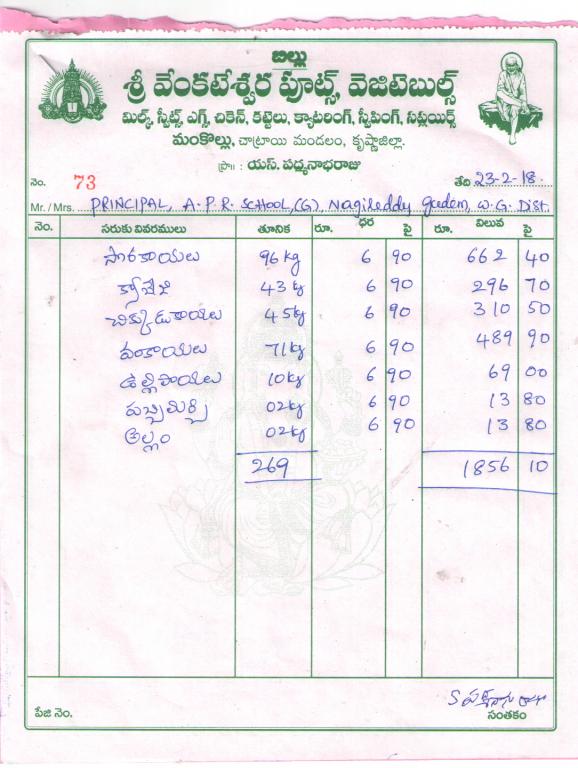 బిల్లు
శ్రీ వెంకటేశ్వర ఫ్రూట్స్, వెజిటెబుల్స్
మిల్క్, స్వీట్స్, ఎగ్స్, చికెన్, కట్టెలు, క్యాటరింగ్, స్వీపింగ్, సప్లయిర్స్
మంకొల్లు, చాట్రాయి మండలం, కృష్ణాజిల్లా.
ప్రొ॥ : యస్. పద్మనాభరాజు
నెం. 73 తేది 23-2-18
Mr. / Mrs. PRINCIPAL, A.P.R. SCHOOL,(G), Nagireddy gudem, W.G. Dist.
నెం. సరుకు వివరములు తూనిక రూ. ధర పై రూ. విలువ పై
సొరకాయలు 96 kg 6 90 662 40
క్యాబేజి 43 kg 6 90 296 70
చిక్కుడుకాయలు 45 kg 6 90 310 50
వంకాయలు 71 kg 6 90 489 90
ఉల్లిపాయలు 10 kg 6 90 69 00
పచ్చిమిర్చి 02 kg 6 90 13 80
అల్లం 02 kg 6 90 13 80
269 1856 10
పేజి నెం. సంతకం